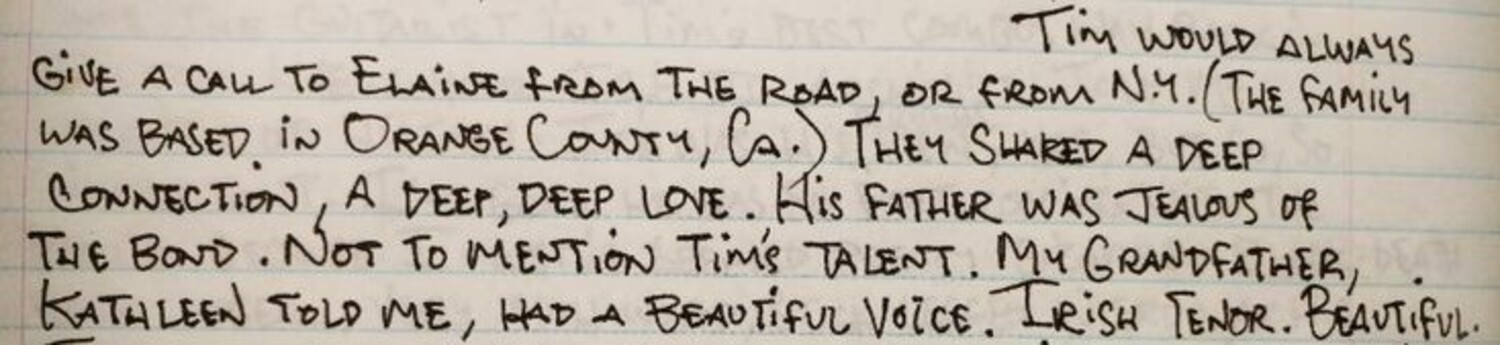 Tim would always
give a call to Elaine from the road, or from N.Y. (The family
was based in Orange County, Ca.) They shared a deep
connection, a deep, deep love. His father was jealous of
the bond. Not to mention Tim's talent. My Grandfather,
Kathleen told me, had a beautiful voice. Irish Tenor. Beautiful.